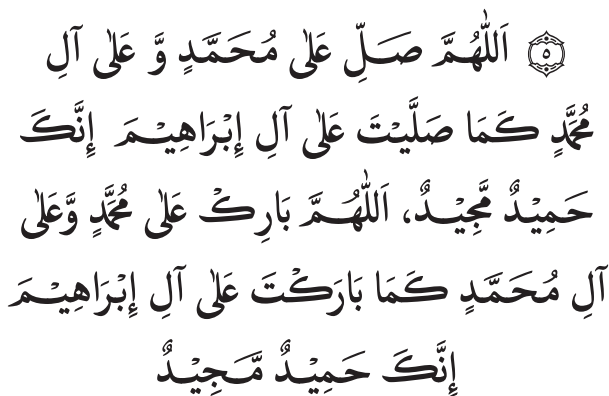 ﴿٥﴾ اَللّٰهُمَّ صَلِّ عَلٰى مُحَمَّدٍ وَّ عَلٰى آلِ
مُحَمَّدٍ كَمَا صَلَّيْتَ عَلٰى آلِ إِبْرَاهِيْمَ إِنَّكَ
حَمِيْدٌ مَّجِيْدٌ، اَللّٰهُمَّ بَارِكْ عَلٰى مُحَمَّدٍ وَّعَلٰى
آلِ مُحَمَّدٍ كَمَا بَارَكْتَ عَلٰى آلِ إِبْرَاهِيْمَ
إِنَّكَ حَمِيْدٌ مَّجِيْدٌ